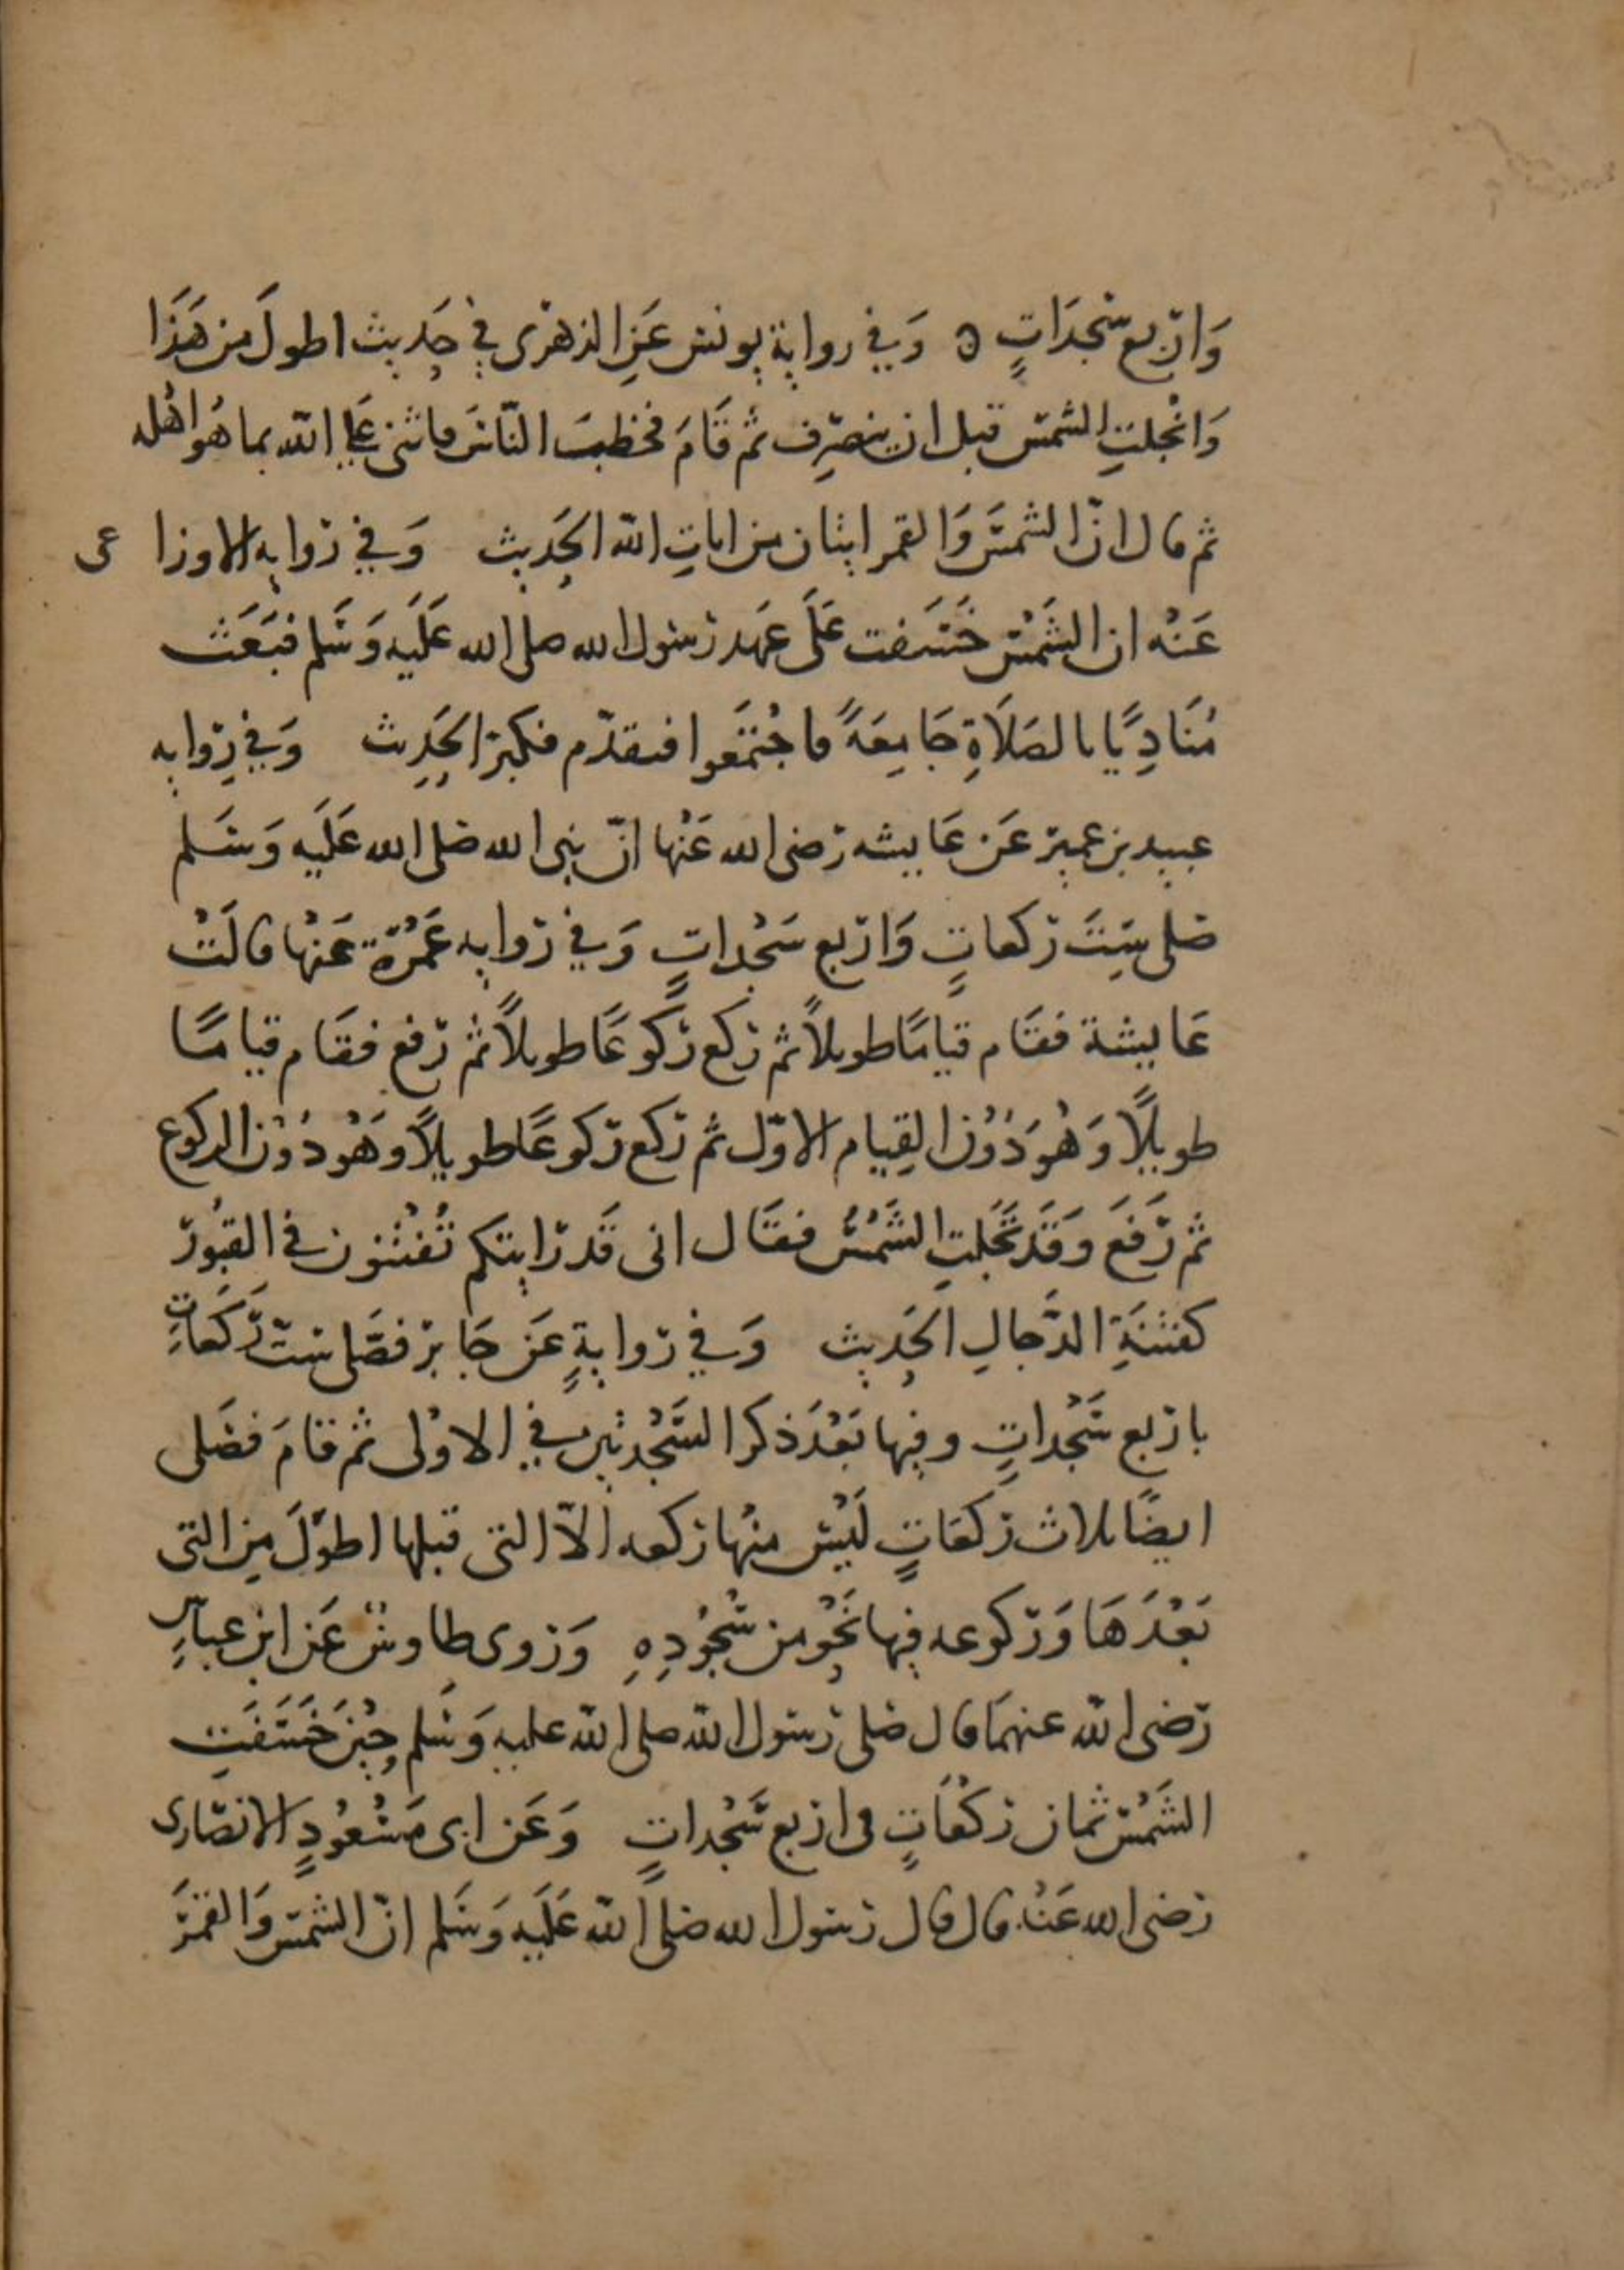 وَاربع سَجدَاتٍ ه وَفي رواية يونس عَنِ الزهرى في حَديث اطولَ من هَذَا
وَانْجلتِ الشمس قبل ان ينصرِف ثم قَامَ فخطبَ النّاسَ فاثنى عَلى الله بما هُوَ اهْله
ثم قال انّ الشمسَ وَالقمر ايتان من اياتِ الله الحَديث وَفي روايه الاوزاعى
عَنْه ان الشَمْس خَسَفت عَلَى عَهد رسول الله صلى الله عَلَيه وَسَلم فبَعَث
مُنَادِيًا بالصَلَاةِ جَامِعَةً فاجْتمَعوا فتقدّم فكبرَ الحَدِيث وَفي رِوايه
عبيد بن عمير عَن عَايشه رَضى الله عَنْها انّ نبى الله صَلى الله عَلَيه وَسَلم
صَلى سِتَ ركعاتٍ وَاربع سَجْداتٍ وَفي روايه عَمْرَة عَنْها قالَتْ
عَايشة فقَام قيامًا طويلاً ثم ركع ركوعًا طويلاً ثم رفع فقَام قيامًا
طويلًا وَهُوَ دُوْنَ القِيام الاوّل ثم ركع ركوعًا طويلاً وهُو دُوْنَ الركوع
ثم رَفَعَ وَقَد تجَلتِ الشَمْسُ فقَال انى قَد رَايتكم تُفْتنون في القبُور
كفتنَةِ الدَّجالِ الحَديث وَفي روايةٍ عَن جَابر فصَلى ستّ رَكَعَاتٍ
باربع سَجْداتٍ وفيها بَعْدَ ذكر السَّجْدتين في الاوْلى ثم قامَ فصَلى
ايضًا ثلاث ركعَاتٍ لَيْسَ منْها ركعه الاّ التى قبلها اطوَلَ مِن التى
بَعْدَهَا وَركوعه فيها نَحْو من سُجُوْدِهِ وَرَوى طاوسٌ عَن ابن عبّاسٍ
رَضى الله عنهمَا قال صَلى رسول الله صلى الله عليه وَسَلم حِيْنَ خَسَفَتِ
الشَمْس ثمان ركْعَاتٍ فى اربع سَجْداتٍ وَعَن ابى مَسْعُوْدٍ الانصَارى
رَضى الله عَنْه قال قال رسول الله صَلى الله عَلَيه وَسَلم انّ الشمسَ وَالقمَرَ